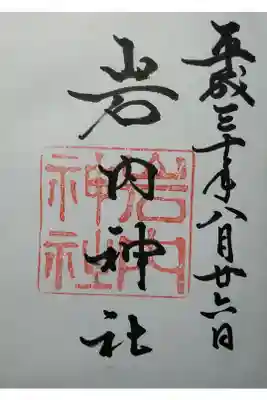 平成三十年八月廿六日
岩内神社
岩内
神社